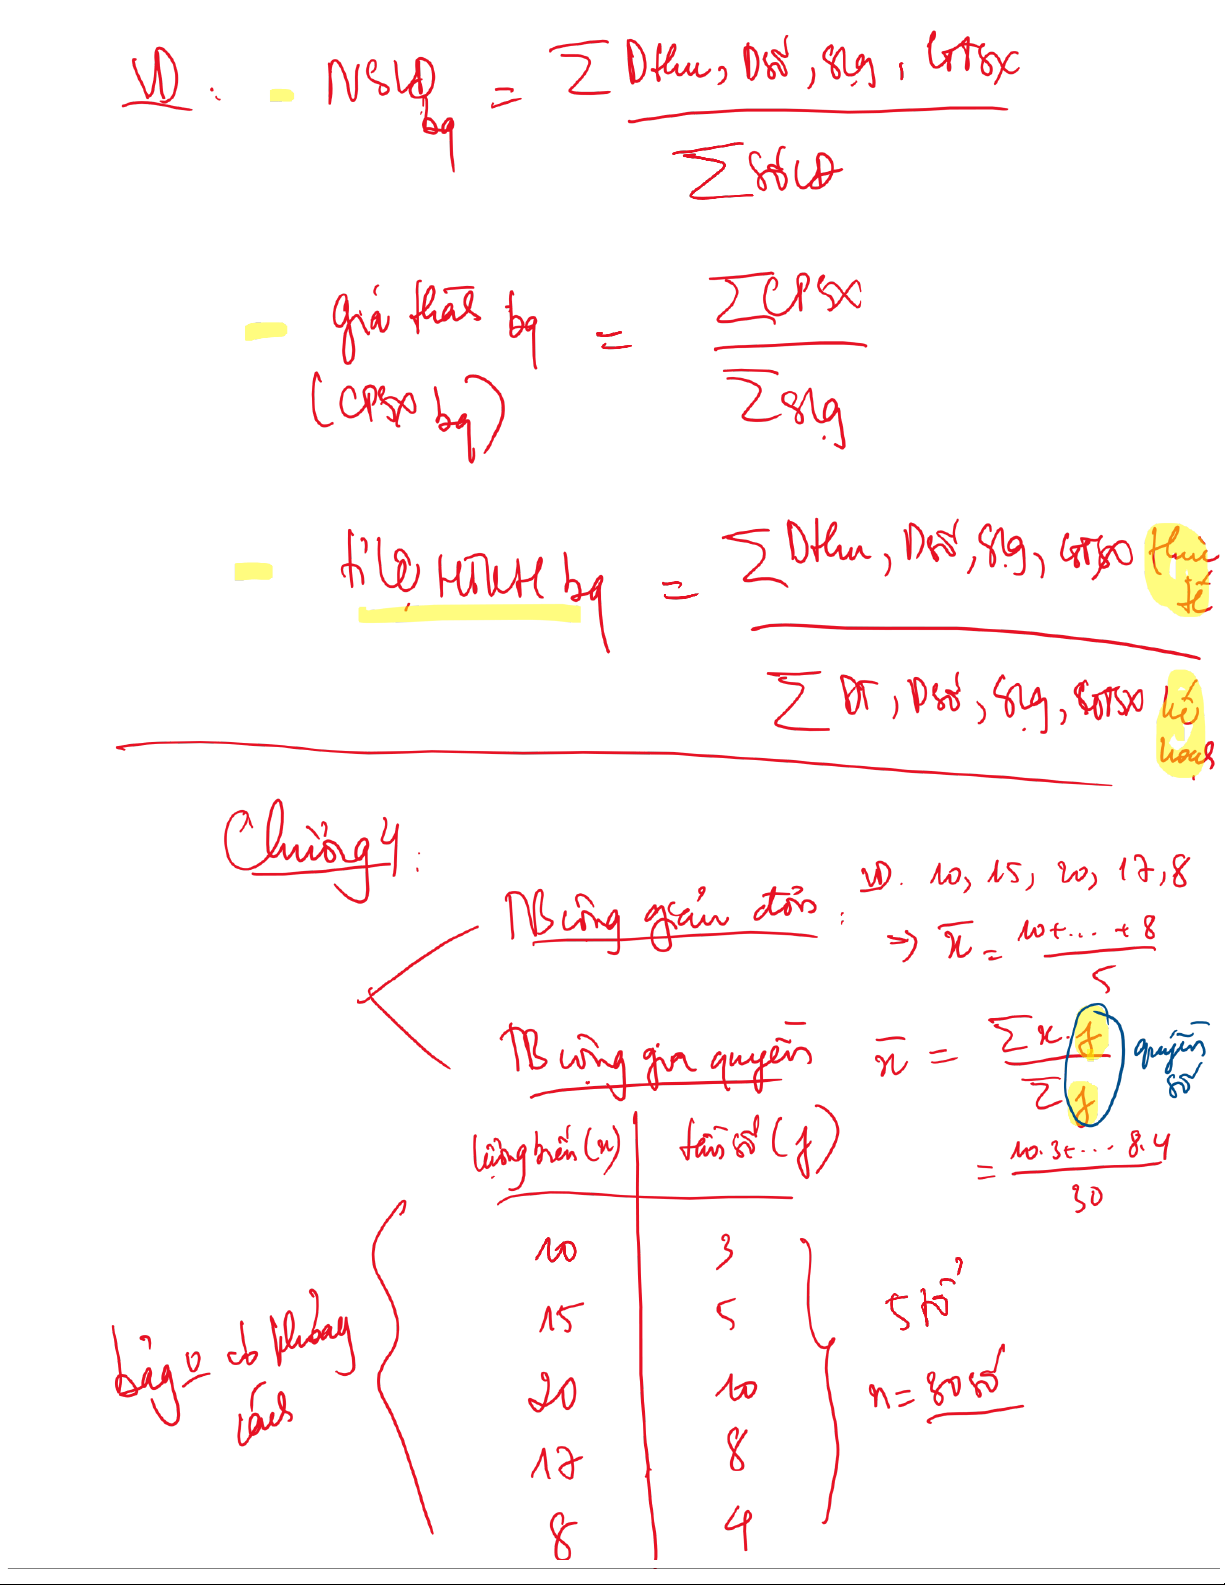 VD: - NSLĐ bq = ∑ Dthu, Dsố, Slg, GTSX / ∑ Số LĐ
- giá thành bq = ∑ CPSX / ∑ Slg
(CPSX bq)
- tỉ lệ HTKH bq = ∑ Dthu, Dsố, Slg, GTSX thực tế / ∑ DT, Dsố, Slg, GTSX kế hoạch
Chương 4:
TB cộng giản đơn: VD. 10, 15, 20, 17, 8
=> x̄ = 10+...+8 / 5
TB cộng gia quyền x̄ = ∑x.f / ∑f quyền số
= 10.3+...8.4 / 30
lượng biến (x) | tần số (f)
10 | 3
15 | 5
20 | 10
17 | 8
8 | 4
bảng 0 có khoảng cách
5 tổ
n = 30 số